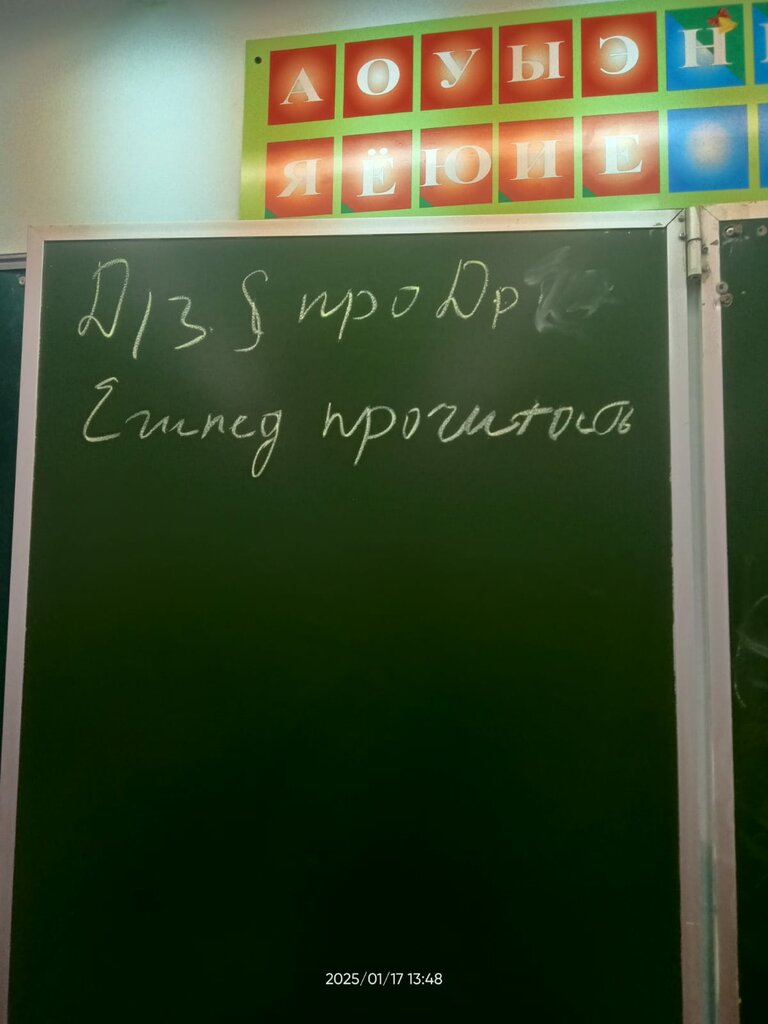 А О У Ы Э Н
Я Ё Ю И Е
Д/З. § про Др
Египед прочитость
2025/01/17 13:48